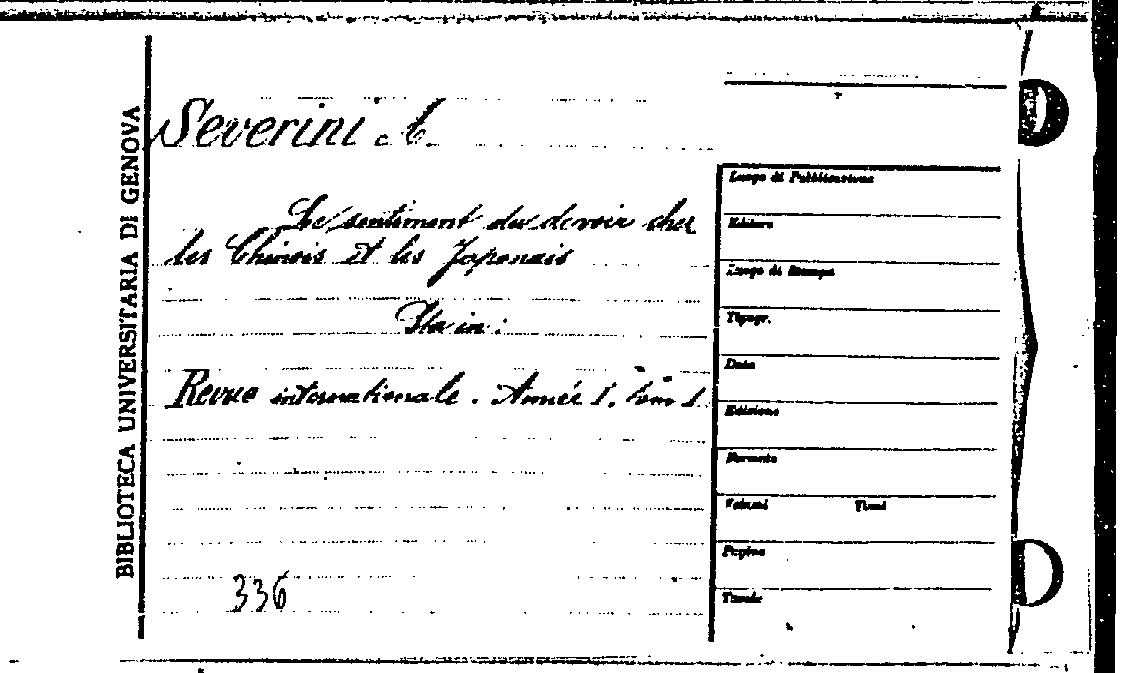 BIBLIOTECA UNIVERSITARIA DI GENOVA
Severini A.
Le sentiment du devoir chez
les Chinois et les Japonais
Sta in:
Revue internationale. Année I, tom I
336
Luogo di Pubblicazione
Editore
Luogo di Stampa
Tipogr.
Data
Edizione
Formato
Volumi Tomi
Pagine
Tavole